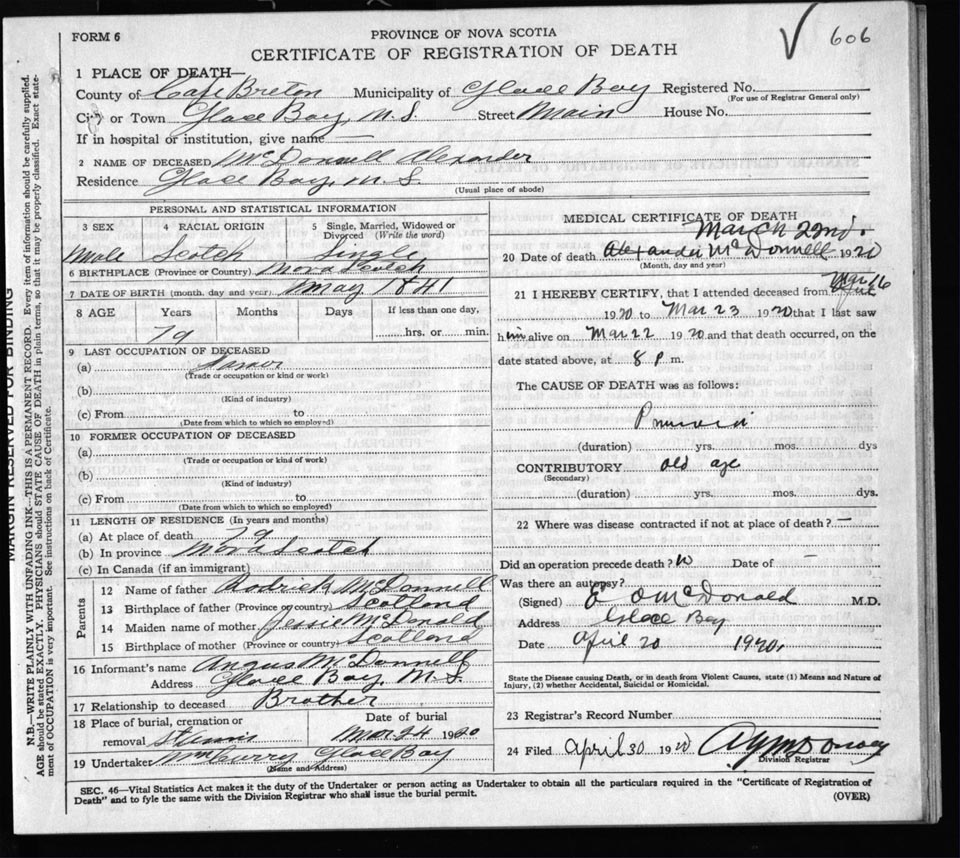 FORM 6
PROVINCE OF NOVA SCOTIA
CERTIFICATE OF REGISTRATION OF DEATH
606
1 PLACE OF DEATH—
County of Cape Breton Municipality of Glace Bay Registered No.
(For use of Registrar General only)
City or Town Glace Bay, N.S. Street Main House No.
If in hospital or institution, give name
2 NAME OF DECEASED McDonnell Alexander
Residence Glace Bay, N.S.
(Usual place of abode)
PERSONAL AND STATISTICAL INFORMATION
3 SEX 4 RACIAL ORIGIN 5 Single, Married, Widowed or Divorced (Write the word)
Male Scotch Single
6 BIRTHPLACE (Province or Country) Nova Scotch
7 DATE OF BIRTH (month, day and year) May 1841
8 AGE Years Months Days If less than one day,
79 hrs. or min.
9 LAST OCCUPATION OF DECEASED
(a)
(Trade or occupation or kind or work)
(b)
(Kind of industry)
(c) From to
(Date from which to which so employed)
10 FORMER OCCUPATION OF DECEASED
(a)
(Trade or occupation or kind of work)
(b)
(Kind of industry)
(c) From to
(Date from which to which so employed)
11 LENGTH OF RESIDENCE (In years and months)
(a) At place of death 79
(b) In province Nova Scotch
(c) In Canada (if an immigrant)
Parents
12 Name of father Rodrick McDonnell
13 Birthplace of father (Province or country) Scotland
14 Maiden name of mother Jessie McDonald
15 Birthplace of mother (Province or country) Scotland
16 Informant's name Angus McDonnell
Address Glace Bay, N.S.
17 Relationship to deceased Brother
18 Place of burial, cremation or removal Date of burial
Mar 24 1920
19 Undertaker Glace Bay
(Name and Address)
MEDICAL CERTIFICATE OF DEATH
March 22nd.
20 Date of death Alexander McDonnell 1920
(Month, day and year)
21 I HEREBY CERTIFY, that I attended deceased from Mar 16
1920 to Mar 23 1920 that I last saw
him alive on Mar 22 1920 and that death occurred, on the
date stated above, at 8 p m.
The CAUSE OF DEATH was as follows:
(duration) yrs. mos. dys
CONTRIBUTORY old age
(Secondary)
(duration) yrs. mos. dys.
22 Where was disease contracted if not at place of death? —
Did an operation precede death? Date of —
Was there an autopsy?
(Signed) McDonald M.D.
Address Glace Bay
Date April 20 1920.
State the Disease causing Death, or in death from Violent Causes, state (1) Means and Nature of
Injury, (2) whether Accidental, Suicidal or Homicidal.
23 Registrar's Record Number
24 Filed April 30 1920
Division Registrar
SEC. 46—Vital Statistics Act makes it the duty of the Undertaker or person acting as Undertaker to obtain all the particulars required in the "Certificate of Registration of
Death" and to fyle the same with the Division Registrar who shall issue the burial permit.
(OVER)
MARGIN RESERVED FOR BINDING
N.B.—WRITE PLAINLY WITH UNFADING INK—THIS IS A PERMANENT RECORD. Every item of information should be carefully supplied.
AGE should be stated EXACTLY. PHYSICIANS should STATE CAUSE OF DEATH in plain terms, so that it may be properly classified. Exact state-
ment of OCCUPATION is very important. See instructions on back of Certificate.